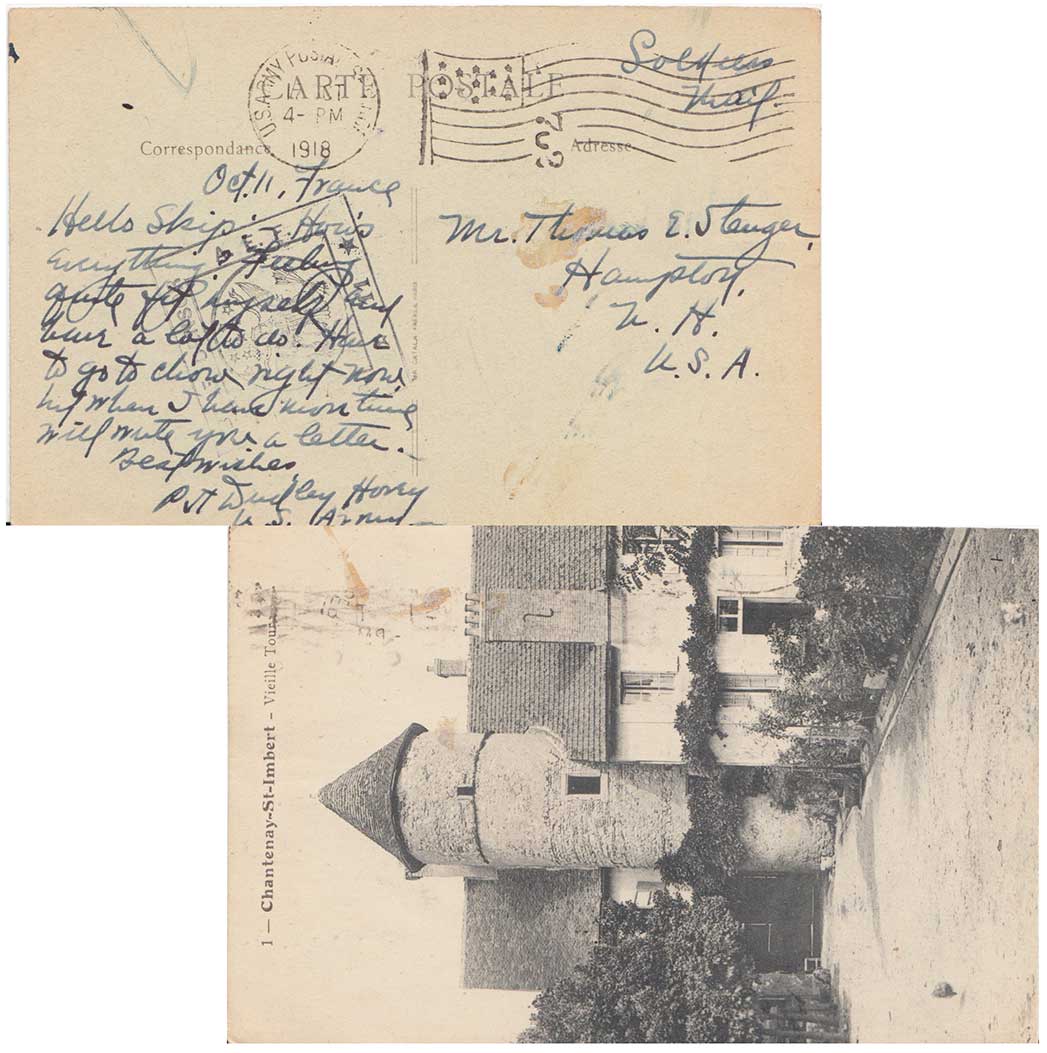 U.S. ARMY POSTAL
4- PM
1918
CARTE POSTALE
702
Soldiers
Mail.
Correspondance
Adresse
Oct. 11, France
Hello Skip:- How's
everything? Feeling
quite fit myself and
have a lot to do. Have
to go to chow right now,
but when I have more time
will write you a letter.
Best wishes,
Pvt Dudley Hovey
U.S. Army
Mr. Thomas E. Stenger,
Hampton,
N. H.
U. S. A.
1 — Chantenay-St-Imbert - Vieille Tour